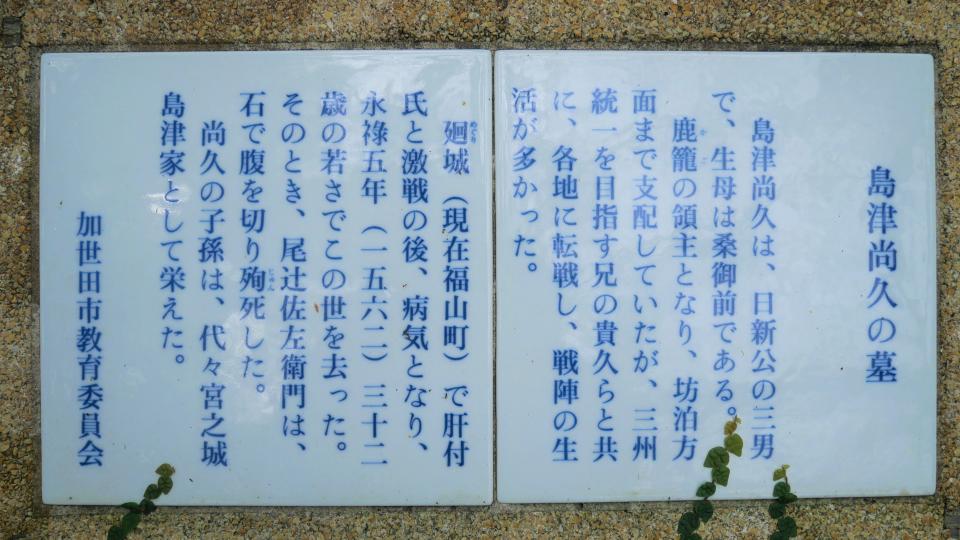 島津尚久の墓
島津尚久は、日新公の三男
で、生母は桑御前である。
鹿籠の領主となり、坊泊方
面まで支配していたが、三州
統一を目指す兄の貴久らと共
に、各地に転戦し、戦陣の生
活が多かった。
廻城（現在福山町）で肝付
氏と激戦の後、病気となり、
永禄五年（一五六二）三十二
歳の若さでこの世を去った。
そのとき、尾辻佐左衛門は、
石で腹を切り殉死した。
尚久の子孫は、代々宮之城
島津家として栄えた。
加世田市教育委員会